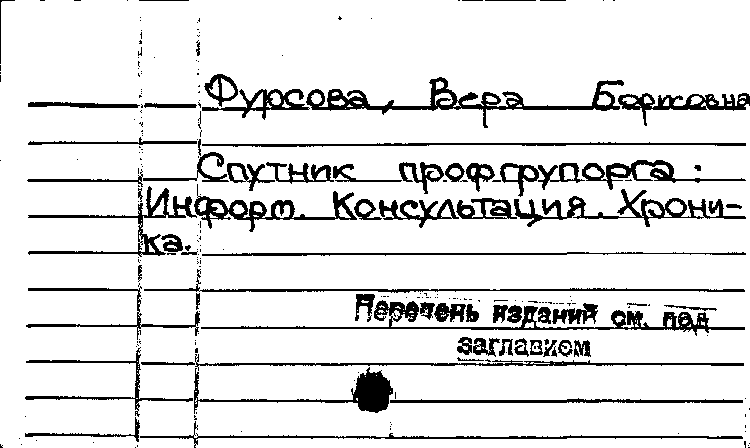 Фурсова, Вера Борисовна
Спутник профгрупорга :
Информ. Консультация. Хрони-
ка.
Перечень изданий см. под
заглавием